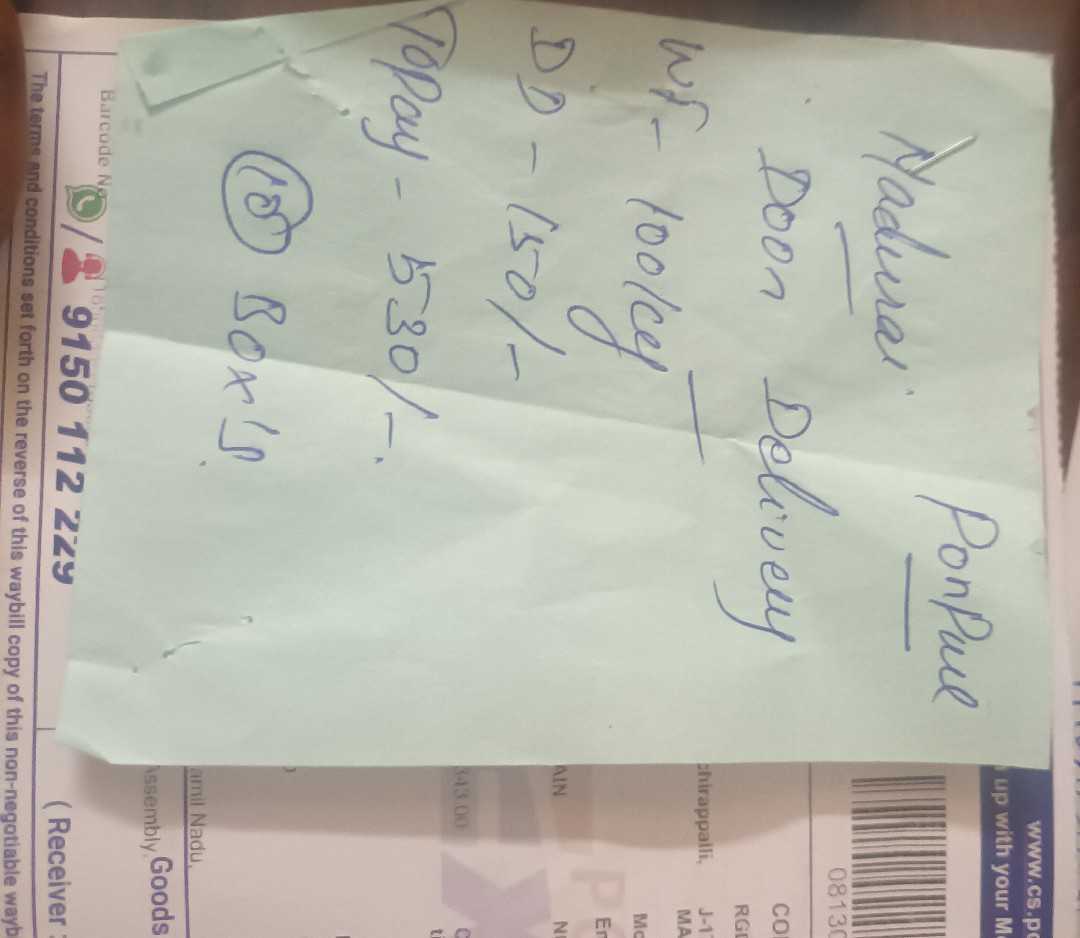 PonPure
Madurai
Door Delivery
Wt - 100kg
DD - 150/-
ToPay - 530/-.
10 Box's
www.cs.p
up with your M
08130
CO
RGI
chirappalli,
J-1
MA
Mo
Em
AIN
343.00
amil Nadu,
Assembly,
Goods
Barcode No
9150 112 229
(Receiver :
The terms and conditions set forth on the reverse of this waybill copy of this non-negotiable wayb